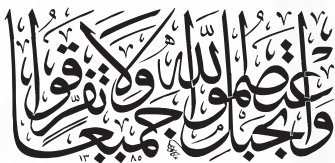 واعتصموا بحبل الله جميعا ولا تفرقوا
١٣٨٥